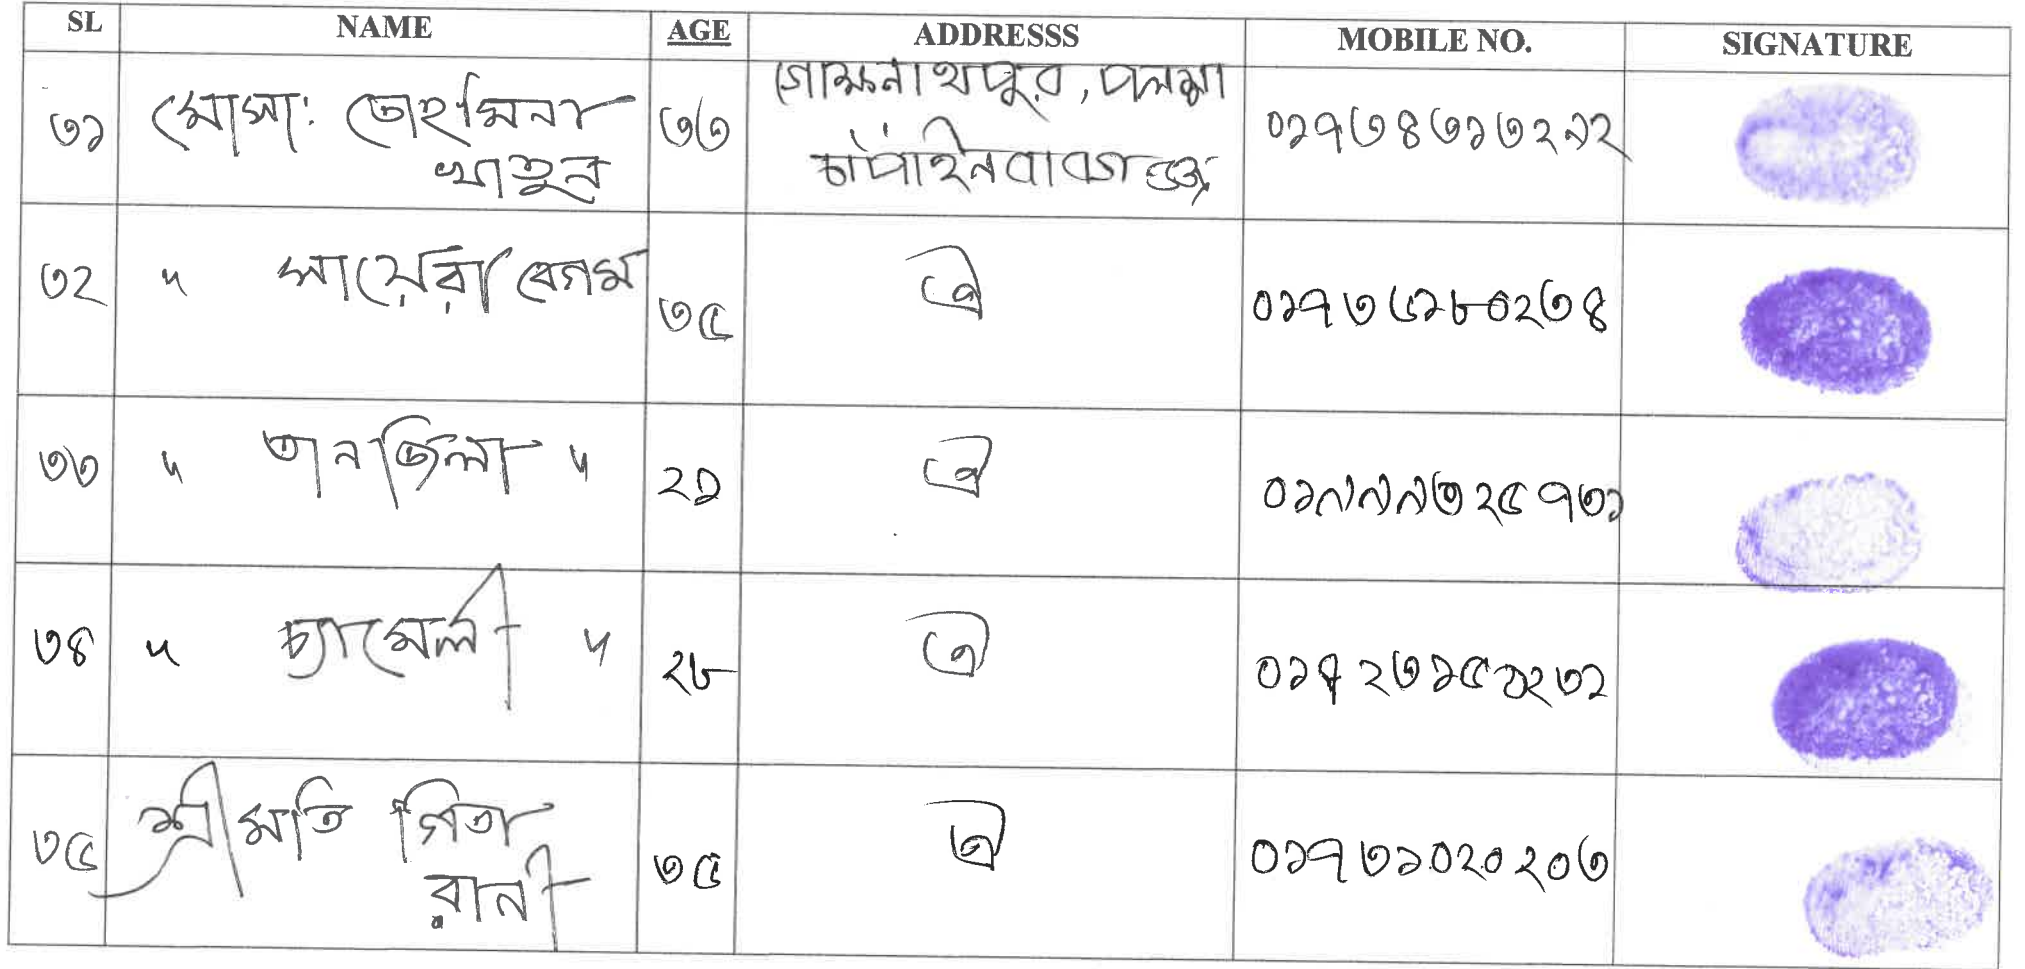 SL NAME AGE ADDRESSS MOBILE NO. SIGNATURE
৩১ মোসা: তোহমিনা খাতুন ৩৩ পলশা চাঁপাইনবাবগঞ্জ ০১৭৩৪৩১৩২১২
৩২ " সায়েরা বেগম ৩৫ ঐ ০১৭৩৫১৮০২৩৪
৩৩ " তানজিলা " ২১ ঐ
৩৪ " চ্যামেলী " ২৮ ঐ
৩৫ শ্রীমতি গিতা রানী ৩৫ ঐ ০১৭৩১০২০২০৩